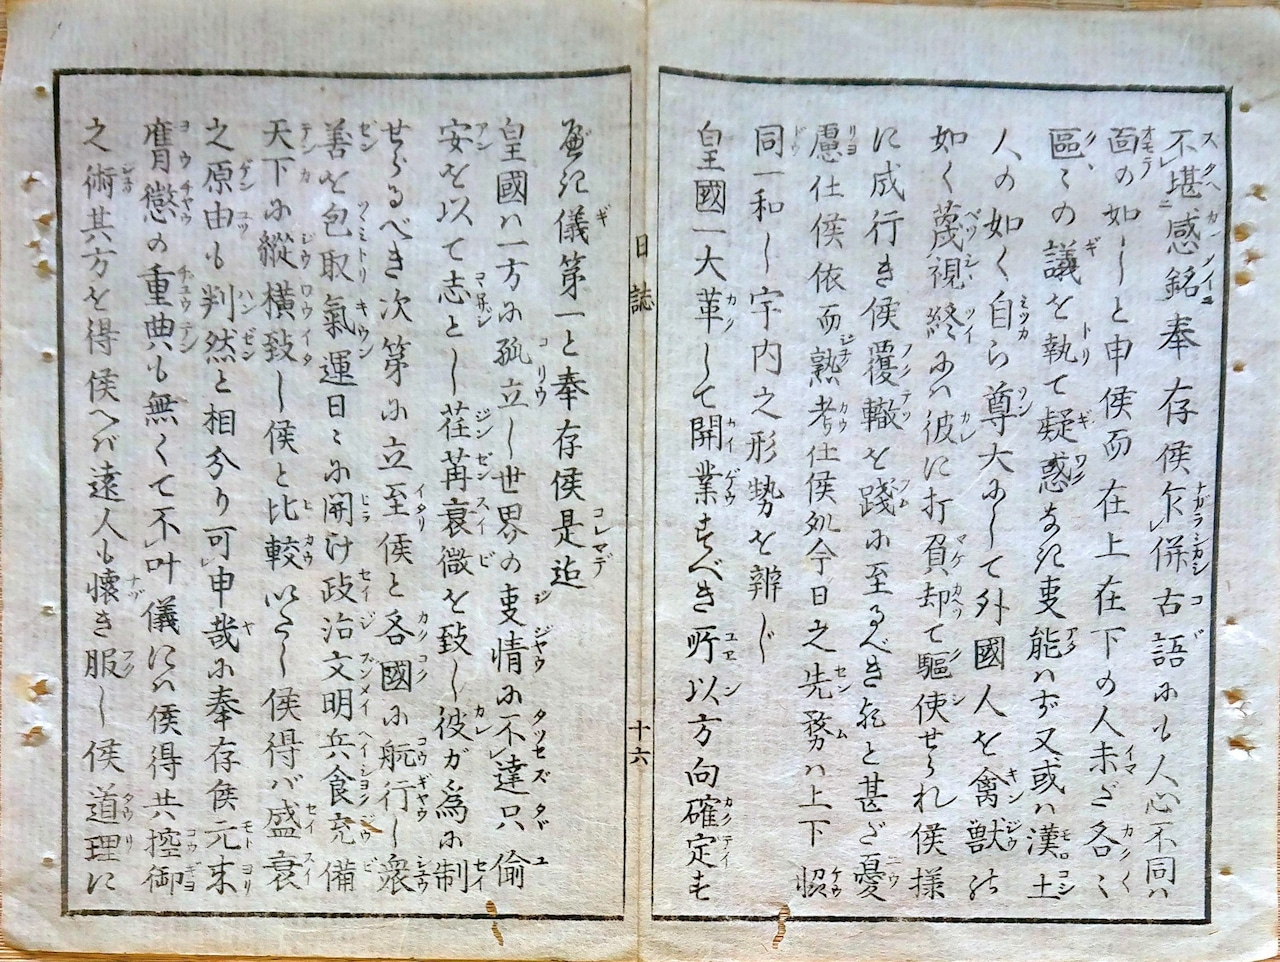 不堪感銘奉存候乍併古語にも人心不同ハ
面の如しと申候而在上在下の人未ざ各〻
區〻の議を執て疑惑なき叓能ハず又或ハ漢土
人の如く自ら尊大にして外國人を禽獣の
如く蔑視終にハ彼に打負却て驅使せられ候様
に成行き候覆轍を踐に至るべき歟と甚ざ憂
慮仕候依而熟考仕候処今日之先務ハ上下恊
同一和し宇内之形勢を辨じ
皇國一大革して開業すべき所以方向確定す
日誌
十六
べき儀第一と奉存候是迄
皇國ハ一方に孤立し世界の叓情に不達只偷
安を以て志とし荏苒衰微を致し彼が為に制
せらるべき次第に立至候と各國に航行し衆
善を包取氣運日〻に開け政治文明兵食充備
天下に縱横致し候と比較いたし候得バ盛衰
之原由も判然と相分り可申哉に奉存候元来
膺懲の重典も無くて不叶儀にハ候得共控御
之術其方を得候へバ遠人も懐き服し候道理に